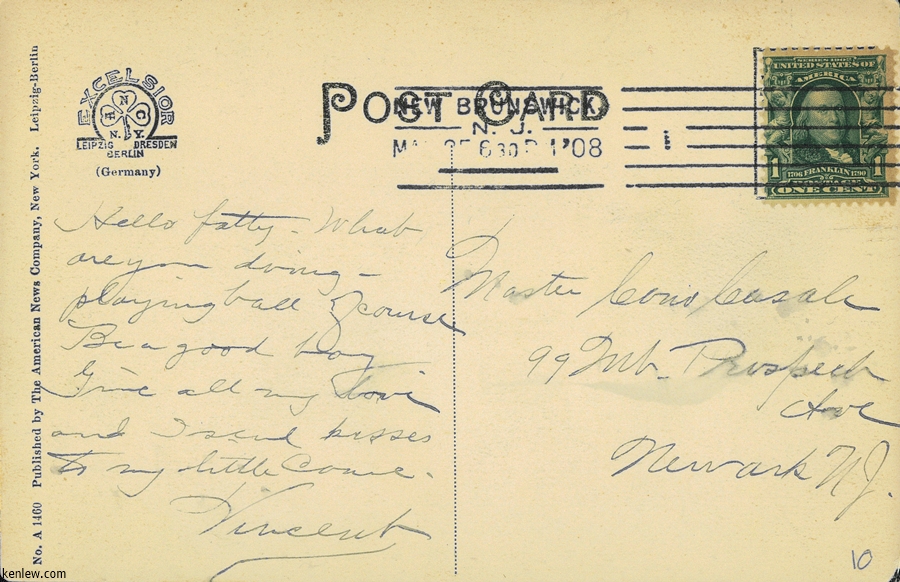 No. A 1460 Published by The American News Company, New York. Leipzig-Berlin
EXCELSIOR
N
E C
N. Y.
LEIPZIG DRESDEN
BERLIN
(Germany)
POST CARD
NEW BRUNSWICK,
N. J.
6 30 P '08
1
SERIES 1902
UNITED STATES OF
AMERICA
1706 FRANKLIN 1790
1 1
ONE CENT
Hello fatty - What
are you doing -
playing ball of course
Be a good boy
Give all my love
and I send kisses
to my little
Vincent
Master Casale
99 Mt. Prospect
Ave
Newark NJ.
10
kenlew.com